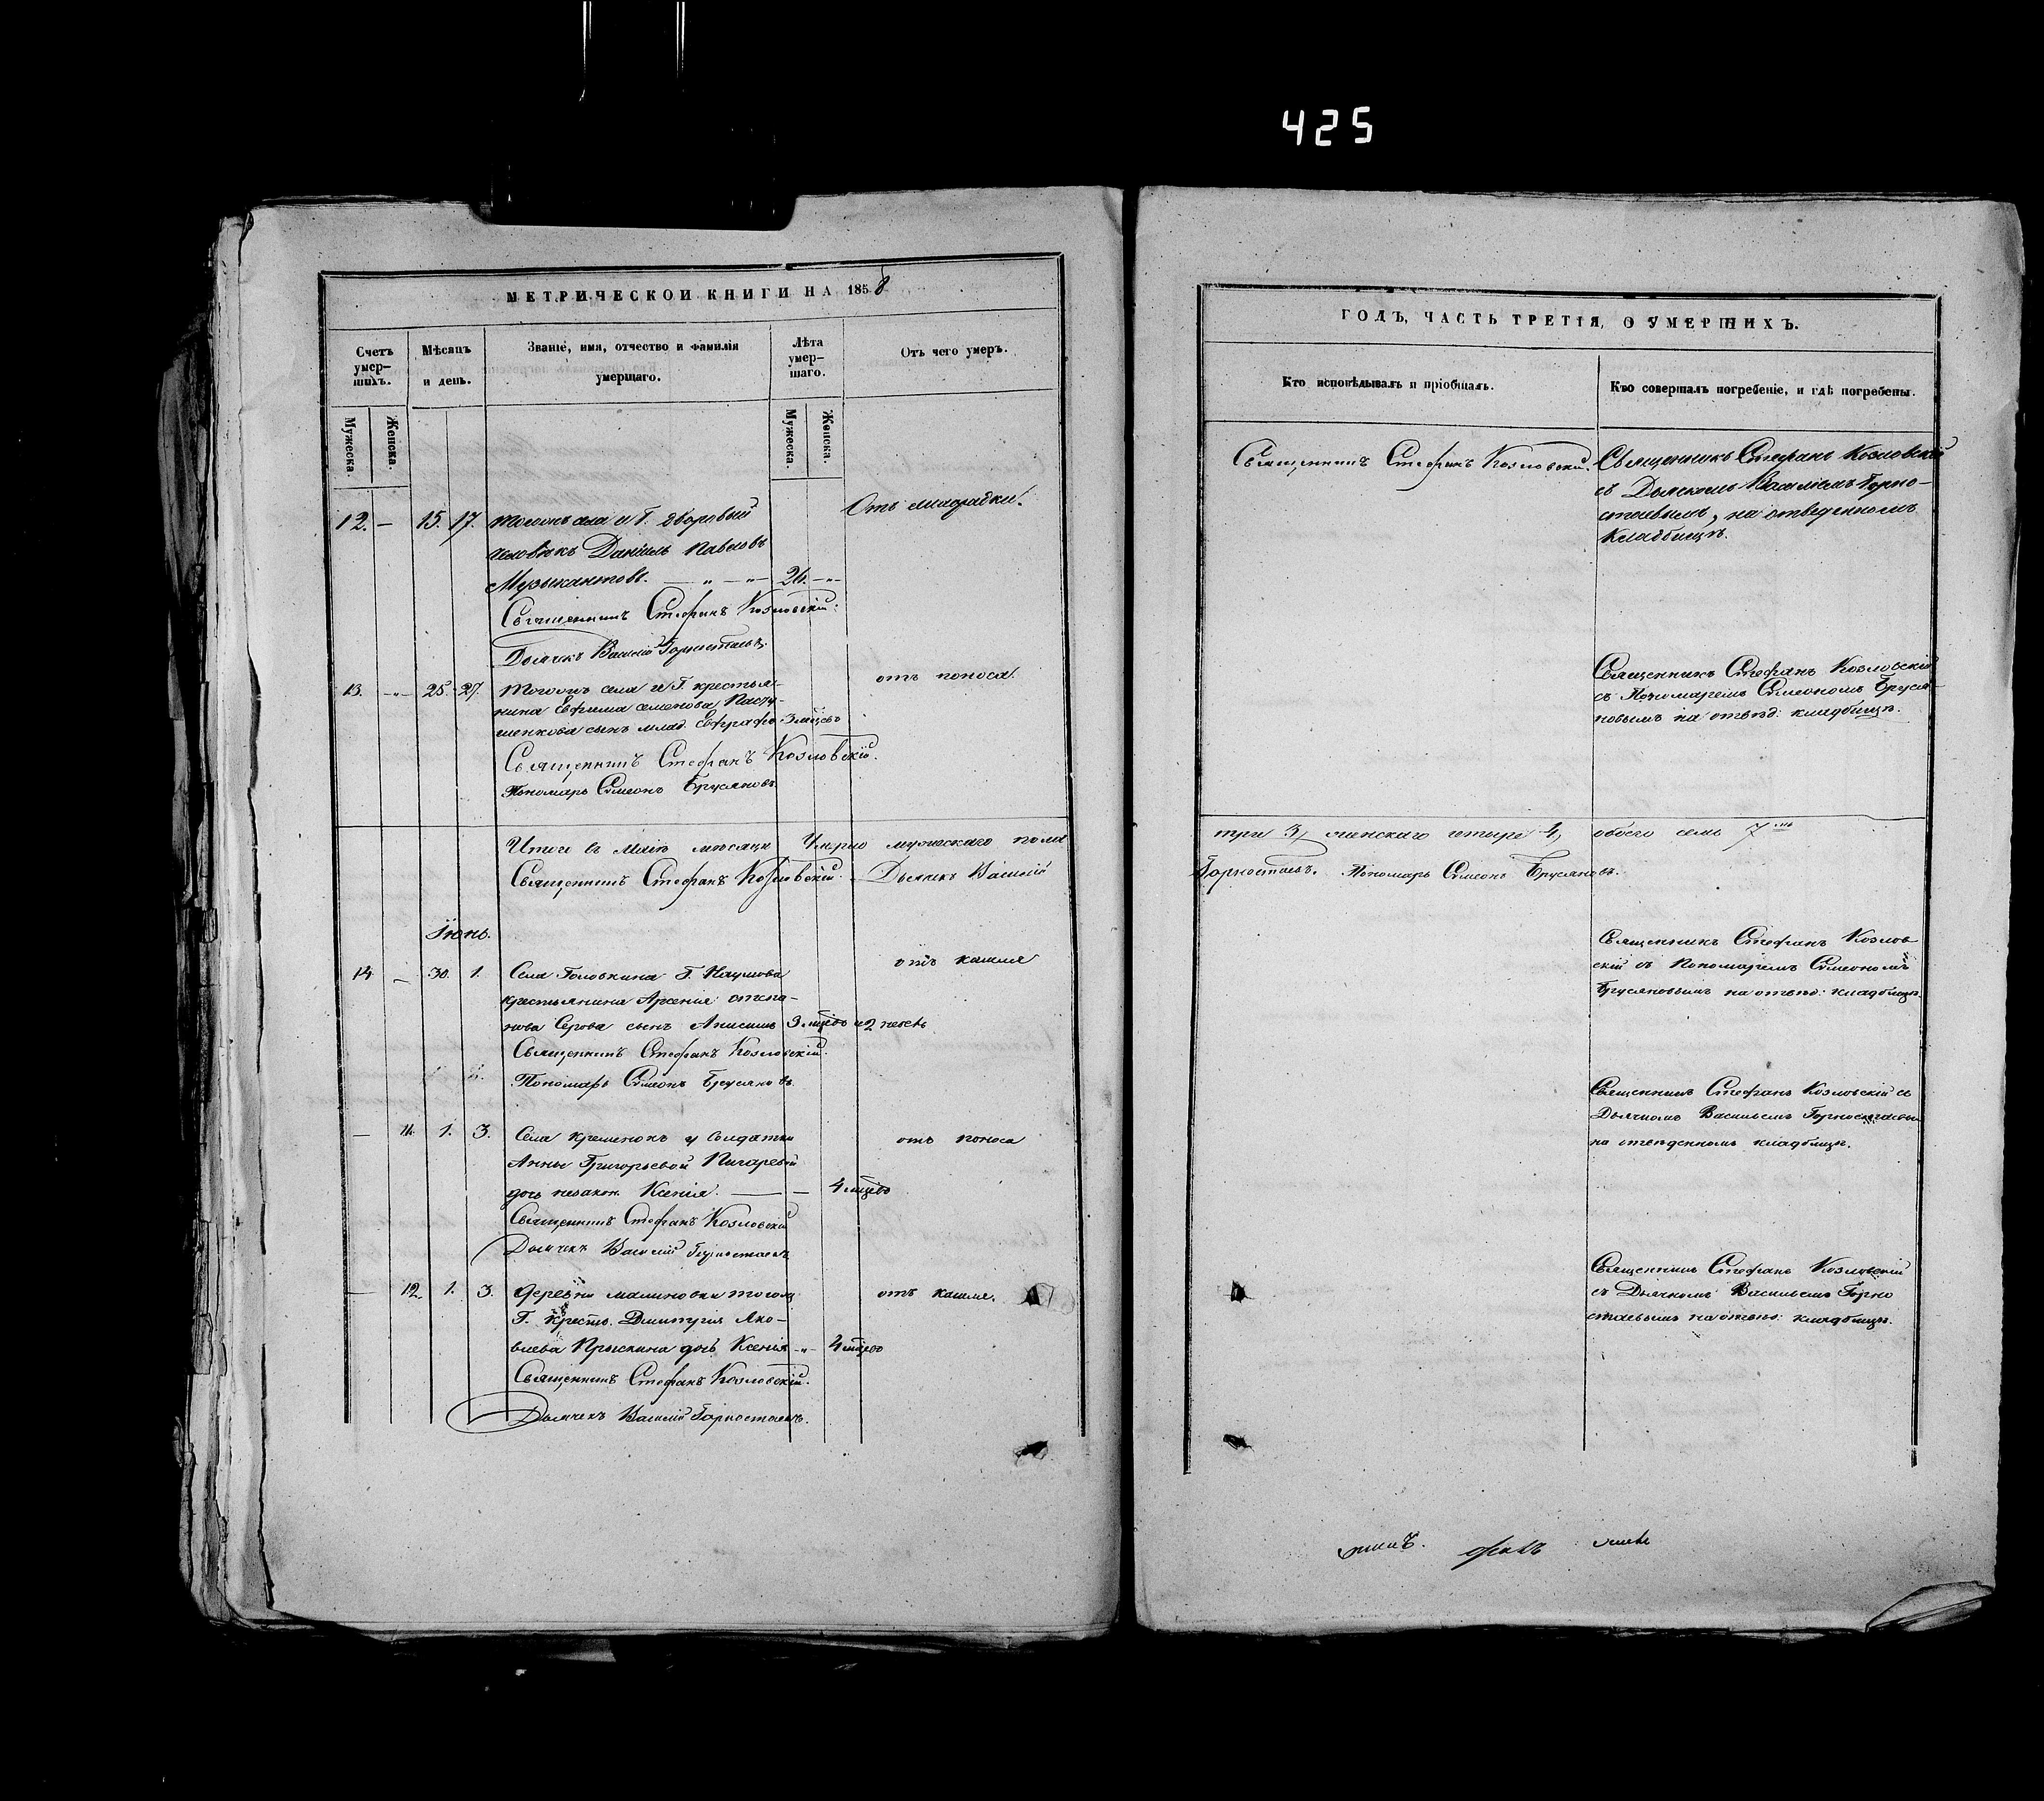 425
МЕТРИЧЕСКОЙ КНИГИ НА 1858
Счетъ умер-шихъ.
Мѣсяцъ и день.
Званіе, имя, отчество и фамилія умершаго.
Лѣта умер-шаго.
Отъ чего умеръ.
Мужеска.
Женска.
Мужеска.
Женска.
12. — 15. 17. Тогожъ села и Г. дворовый Отъ лихорадки.
человѣкъ Даніилъ Павловъ
Музыкантовъ. — „ — „ — 26. — „
Священникъ Стефанъ Козловскій.
Дьячекъ Василій Горностаевъ.
13. — „ — 25. 27. Тогожъ села и Г. крестья- отъ поноса.
нина Ефима Семенова Пасту-
шенкова сынъ млад. Евграфъ 3 мѣсцъ
Священникъ Стефанъ Козловскій.
Пономарь Симеонъ Брусяновъ
Итого въ Маіѣ мѣсяцѣ Умерло мужескаго пола
Священникъ Стефанъ Козловскій. Дьячекъ Василій
Іюнь.
14. — 30. 1. Села Головкина Г. Наумова отъ кашля
крестьянина Арсенія
Серова сынъ Анисимъ 3 мѣсцъ и 2 недѣ
Священникъ Стефанъ Козловскій.
Пономарь Симеонъ Брусяновъ.
— 11. 1. 3. Села Кременокъ у солдатки отъ поноса
Анны Григорьевой Пичаревой
дочь незакон. Ксенія. — — 4 мѣсцъ
Священникъ Стефанъ Козловскій
Дьячекъ Василій Горностаевъ
— 12. 1. 3. Деревни Малиновки тогожъ отъ кашля.
Г. Крестъ. Дмитрія Яко-
влева Прыскина дочь Ксенія — „ — 4 мѣсцъ
Священникъ Стефанъ Козловскій.
Дьячекъ Василій Горностаевъ.
ГОДЪ, ЧАСТЬ ТРЕТІЯ, О УМЕРШИХЪ.
Кто исповѣдывалъ и пріобщалъ.
Кто совершалъ погребеніе, и гдѣ погребены.
Священникъ Стефанъ Козловскій. Священникъ Стефанъ Козловскій
съ Дьячкомъ Василіемъ Горно-
стаевымъ, на отведенномъ
Кладбищѣ.
Священникъ Стефанъ Козловскій
съ Пономаремъ Симеономъ Бруся-
новымъ на отвѣд: кладбищѣ.
три 3, женскаго четыре 4, обоего семь 7
Горностаевъ. Пономарь Симеонъ Брусяновъ.
Священникъ Стефанъ Козлов
скій съ Пономаремъ Симеономъ
Брусяновымъ на отвѣд: кладбищѣ.
Священникъ Стефанъ Козловскій съ
Дьячкомъ Васильемъ Горностаевы
на отведенномъ кладбищѣ.
Священникъ Стефанъ Козловскій
съ Дьячкомъ Васильемъ Горно
стаевымъ на отвѣд: кладбищѣ.